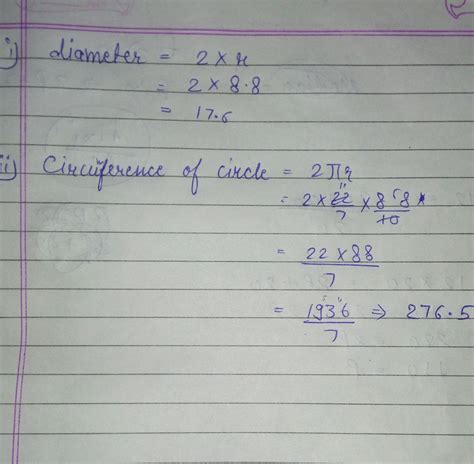 i) diameter = 2 × r
= 2 × 8.8
= 17.6
ii) Circuference of circle = 2πr
= 2 × 22/7 × 88/10
= 22 × 88 / 7
= 1936/7 ⇒ 276.5